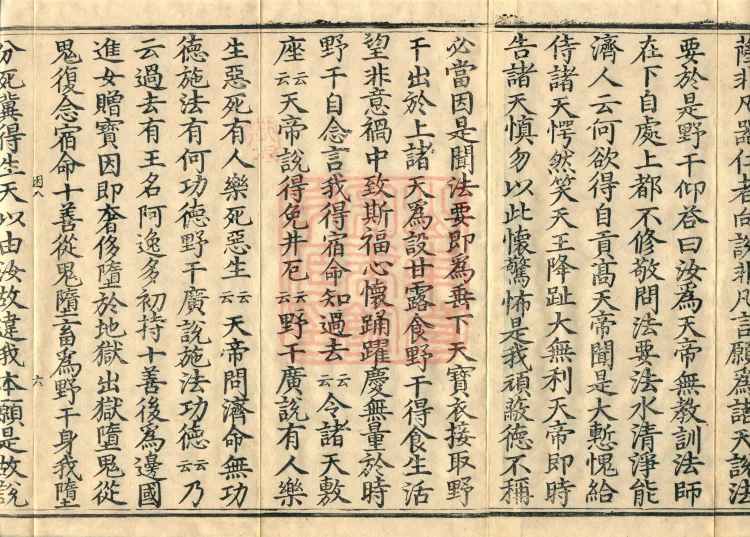 蔭非凡器仁者向說非凡言願爲諸天說法
要於是野干仰荅曰汝爲天帝無教訓法師
在下自處上都不修敬問法要法水清淨能
濟人云何欲得自貢高天帝聞是大慙愧給
侍諸天愕然笑天王降趾大無利天帝即時
告諸天慎勿以此懷驚怖是我頑蔽德不稱
必當因是聞法要即爲垂下天寶衣接取野
干出於上諸天爲設甘露食野干得食生活
望非意禍中致斯福心懷踊躍慶無量於時
野干自念言我得宿命知過去云云令諸天敷
座云云天帝說得免井厄云云野干廣說有人樂
生惡死有人樂死惡生云云天帝問濟命無功
德施法有何功德野干廣說施法功德云云乃
云過去有王名阿逸多初持十善後爲邊國
進女贈寶因即奢侈墮於地獄出獄墮鬼從
鬼復念宿命十善從鬼墮畜爲野干身我墮
因八 六
分死冀得生天以由汝故違我本願是故說